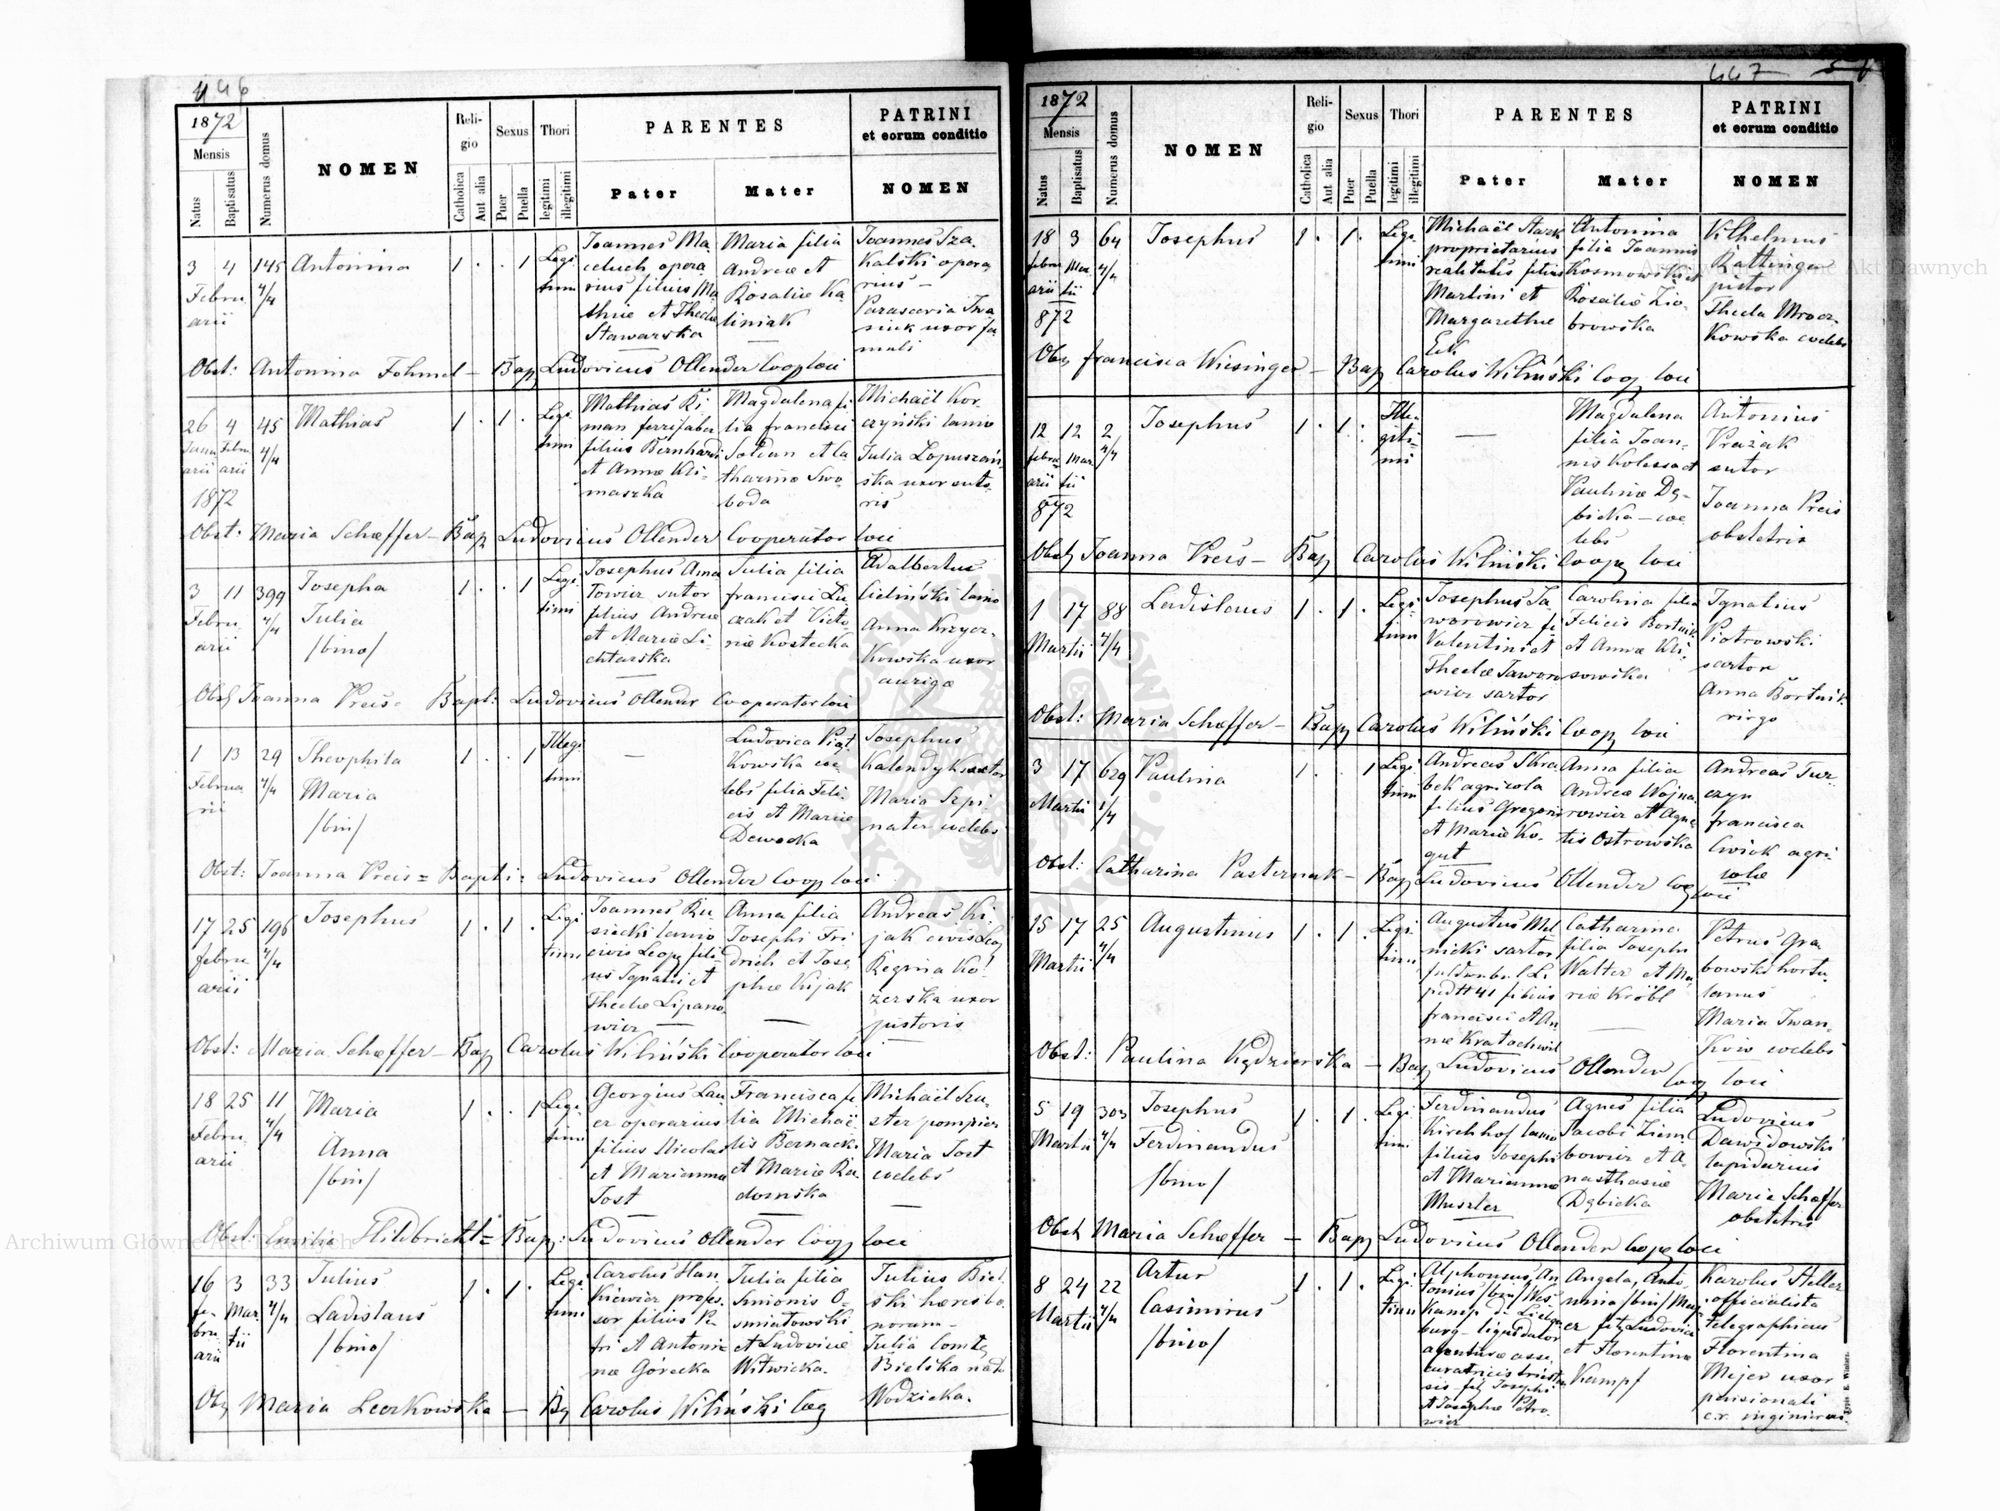 446
1872
Mensis
Natus
Baptisatus
Numerus domus
NOMEN
Reli-
gio
Catholica
Aut alia
Sexus
Puer
Puella
Thori
legitimi
illegitimi
PARENTES
Pater
Mater
PATRINI
et eorum conditio
NOMEN
3 4 145 Antonina 1 . . 1 Legi
Febru 4/4 timi
arii
Joannes Ma
celuch opera
rius filius Ma
thiæ et Theclæ
Stawarska
Maria filia
Andreæ et
Rosaliæ Ka
liniak
Joannes Sza-
kalski opera
rius -
Parascevia Iwa
siuk uxor fa
muli
Obst: Antonina Fohmel - Bap Ludovicus Ollender Coop loci
26 4 45 Mathias 1 . 1 . Legi
Janu Febru 4/4 timi
arii arii
1872
Mathias Ki
man ferrifaber
filius Bernhardi
et Annæ Kli-
maszka
Magdalena fi
lia Francisci
Soltan et Ca
tharinæ Swo
boda
Michaël Kor-
czyński lanio
Julia Łopuszań-
ska uxor suto
ris
Obst: Maria Schæffer - Bap Ludovicus Ollender Cooperator loci
3 11 399 Josepha 1 . . 1 Legi
Febru 4/4 Julia timi
arii /bino/
Josephus Ama
Towicz sutor
filius Andreæ
et Mariæ Li-
chtarska
Julia filia
Francisci Łu
czak et Victo
riæ Kostecka
Adalbertus
Cieliński lanio
Anna Krzycz-
kowska uxor
aurigæ
Obst Joanna Preis - Bapt: Ludovicus Ollender Cooperator loci
1 13 29 Theophila 1 . . 1 Illegi
Februa 4/4 Maria timi
rii /bin/
—
Ludovica Piąt
kowska cæ
lebs filia Feli-
cis et Mariæ
Dewocka
Josephus
Kalendyk sutor
Maria Szpi
nater cælebs
Obst: Joanna Preis = Bapti: Ludovicus Ollender Coop loci
17 25 196 Josephus 1 . 1 . Legi
Febru 4/4 timi
arii
Joannes Ru
siecki lanio
civis Leop fili-
us Ignatii et
Theclæ Lipano-
wicz —
Anna filia
Josephi Fri
drich et Jose
phæ Kijak
—
Andreas Ki
jak civis Leop
Regina Ko-
zerska uxor
pistoris
Obst: Maria Schæffer - Bap Carolus Wiliński Cooperator loci
18 25 11 Maria 1 . . 1 Legi
Febru 4/4 Anna timi
arii /bin/
Georgius Lau
er operarius
filius Nicolai
et Marianna
Jost
Francisca fi
lia Michaë
lis Bernacki
et Mariæ Ra
domska
Michaël Szu-
ster pompier
Maria Jost
cælebs
—
Obst: Emilia Hildbricht = Bap: Ludovicus Ollender Coop loci
16 3 33 Julius 1 . 1 . Legi
fe- Mar 4/4 Ladislaus timi
bru tii /bino/
arii
Carolus Han
kiewicz profes-
sor filius Pe
tri et Antoni
næ Górecka
Julia filia
Simionis O-
smiatowski
et Ludovicæ
Witwicka.
Julius Biel-
ski hæres bo
norum -
Julia comte
Bielska nata
Wodzicka.
Ob Maria Leczkowska — Bp Carolus Wiliński Coop
447
1872
Mensis
Natus
Baptisatus
Numerus domus
NOMEN
Reli-
gio
Catholica
Aut alia
Sexus
Puer
Puella
Thori
legitimi
illegitimi
PARENTES
Pater
Mater
PATRINI
et eorum conditio
NOMEN
18 3 64 Josephus 1 . 1 . Legi
febru Mar 4/4 timi
arii tii
872
Michaël Stark
proprietarius
realitatis filius
Martini et
Margarethæ
Eck
Antonina
filia Joannis
Kosmowski et
Rosaliæ Zio-
browska
Vilhelmus
Rattinger
pistor
Thecla Mrocz-
kowska cælebs
Ob Francisca Wiesinger - Bap Carolus Wiliński Coop loci
12 12 2 Josephus 1 . 1 . Ille-
febru Mar 4/4 giti-
arii tii mi
872
—
Magdalena
filia Joan-
nis Kolessa et
Paulinæ Dę-
bicka - cæ
lebs
Antonius
Prażak
sutor
Joanna Preis
obstetrix
Obst Joanna Preis - Bap Carolus Wiliński Coop loci
1 17 88 Ladislaus 1 . 1 . Legi
Martii 4/4 timi
Josephus Ja
worowicz fi
Valentini et
Theclæ Jaworo
wicz sartor
Carolina filia
Felicis Bortnik
et Annæ Kli-
sowska
Ignatius
Piotrowski
sartor
Anna Bortnik
virgo
Obst: Maria Schæffer - Bap Carolus Wiliński Coop loci
3 17 629 Paulina 1 . . 1 Legi
Martii 1/4 timi
Andreas Skra
bek agricola
filius Gregorii
et Mariæ Ko-
gut
Anna filia
Andreæ Wojna
rowicz et Agne
tis Ostrowska
Andreas Tur
czyn
Francisca
Cwiok agri-
colæ
Obst: Catharina Pasternak - Bap Ludovicus Ollender Coop loci
15 17 25 Augustinus 1 . 1 . Legi
Martii 4/4 timi
Augustus Mel
nicki sartor
filius
Francisci et An
næ Kratochwil
Catharina
filia Josephi
Walter et Ma
riæ Kröbl
—
Petrus Gra
bowski hortu
lanus
Maria Iwan-
Kow cælebs
Obst: Paulina Kędzierska - Bap Ludovicus Ollender Coop loci
5 19 303 Josephus 1 . 1 . Legi
Martii 4/4 Ferdinandus timi
/bino/
Ferdinandus
Kirchhof lanio
filius Josephi
et Mariannæ
Muszler
Agnes filia
Jacobi Ziem-
bowicz et A-
nasthasiæ
Dębicka
Ludovicus
Dawidowski
lapidarius
Maria Schæffer
obstetrix
Obst Maria Schæffer - Bap Ludovicus Ollender Coop loci
8 24 22 Artur 1 . 1 . Legi
Martii 4/4 Casimirus timi
/bino/
Alphonsus An
tonius /bin/ Wes
Kamp di
burg - liquidator
asse
curatricis
sis fil Josephi
et Josephæ Petro-
wicz
Angela, Anto
nina /bin/ May
er fil Ludovici
et Florentinæ
Kampf
Karolus Heller
officialista
telegraphicus
Florentina
Mejer uxor
pensionati
c.r. inginieur
Typis E. Winiarz.
Archiwum Główne Akt Dawnych
Archiwum Główne Akt Dawnych